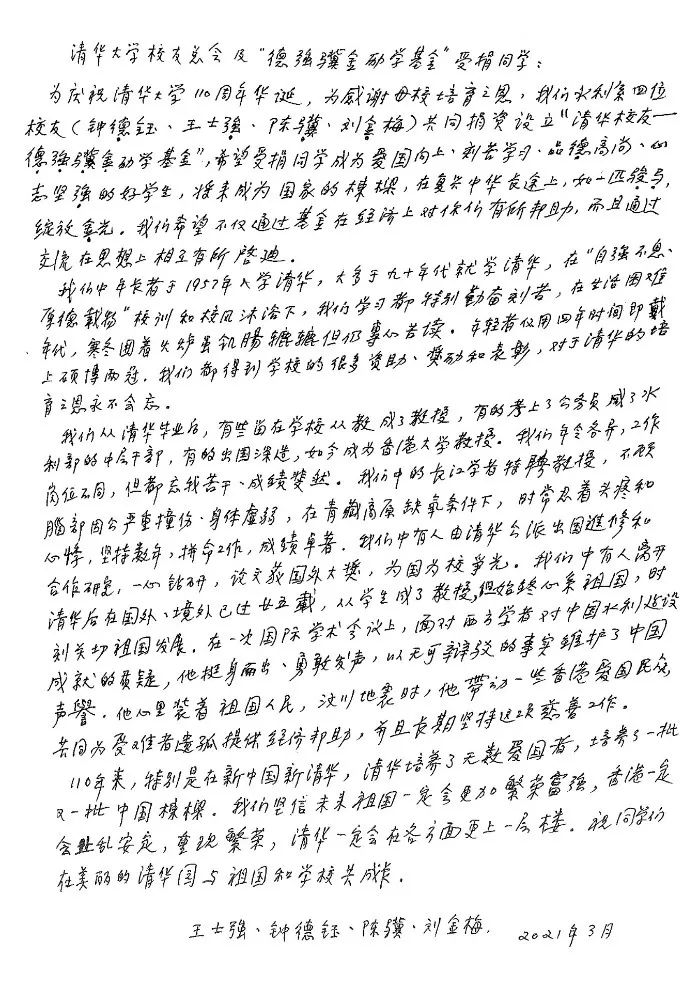 清华大学校友总会及"德强骥金励学基金"受捐同学：
为庆祝清华大学110周年华诞，为感谢母校培育之恩，我们水利系四位
校友（钟德钰、王士强、陈骥、刘金梅）共同捐资设立"清华校友—
德强骥金励学基金"，希望受捐同学成为爱国向上、刻苦学习、品德高尚、心
志坚强的好学生，将来成为国家的栋樑，在复兴中华长途上，如一匹骏马，
绽放金光。我们希望不仅通过基金在经济上对你们有所帮助，而且通过
交流在思想上相互有所啓迪。
我们中年长者于1957年入学清华，大多于九十年代就学清华，在"自强不息、
厚德载物"校训和校风沐浴下，我们学习都特别勤奋刻苦，在生活困难
年代，寒冬围着火炉虽饥腸辘辘但仍專心苦读。年轻者仅用四年时间即戴
上硕博两冠。我们都得到学校的很多资助、奬励和表彰，对于清华的培
育之恩永不会忘。
我们从清华毕业后，有些留在学校从教成了教授，有的考上了公务员成了水
利部的中层干部，有的出国深造，如今成为香港大学教授。我们年令各异，工作
岗位不同，但都忘我苦干、成绩斐然。我们中的长江学者特聘教授，不顾
腦部因公严重撞伤、身体虚弱，在青藏高原缺氧条件下，时常忍着头疼和
心悸，坚持数年，拼命工作，成绩卓著。我们中有人由清华公派出国進修和
合作研究，一心钻研，论文获国外大奬，为国为校争光。我们中有人离开
清华后在国外、境外已过廿五载，从学生成了教授，但始终心系祖国，时
刻关切祖国发展。在一次国际学术会议上，面对西方学者对中国水利建设
成就的质疑，他挺身而出、勇敢发声，以无可辩驳的事实維护了中国
声譽。他心里装着祖国人民，汶川地震时，他带动一些香港爱国民众，
共同为受难者遗孤提供经济帮助，并且长期坚持这项慈善工作。
110年来，特别是在新中国新清华，清华培养了无数爱国者，培养了一批
又一批中国栋樑。我们坚信未来祖国一定会更加繁荣富强，香港一定
会止乱安定，重现繁荣，清华一定会在各方面更上一层楼。祝同学们
在美丽的清华园与祖国和学校共成长。
王士强、钟德钰、陈骥、刘金梅．
2021年3月